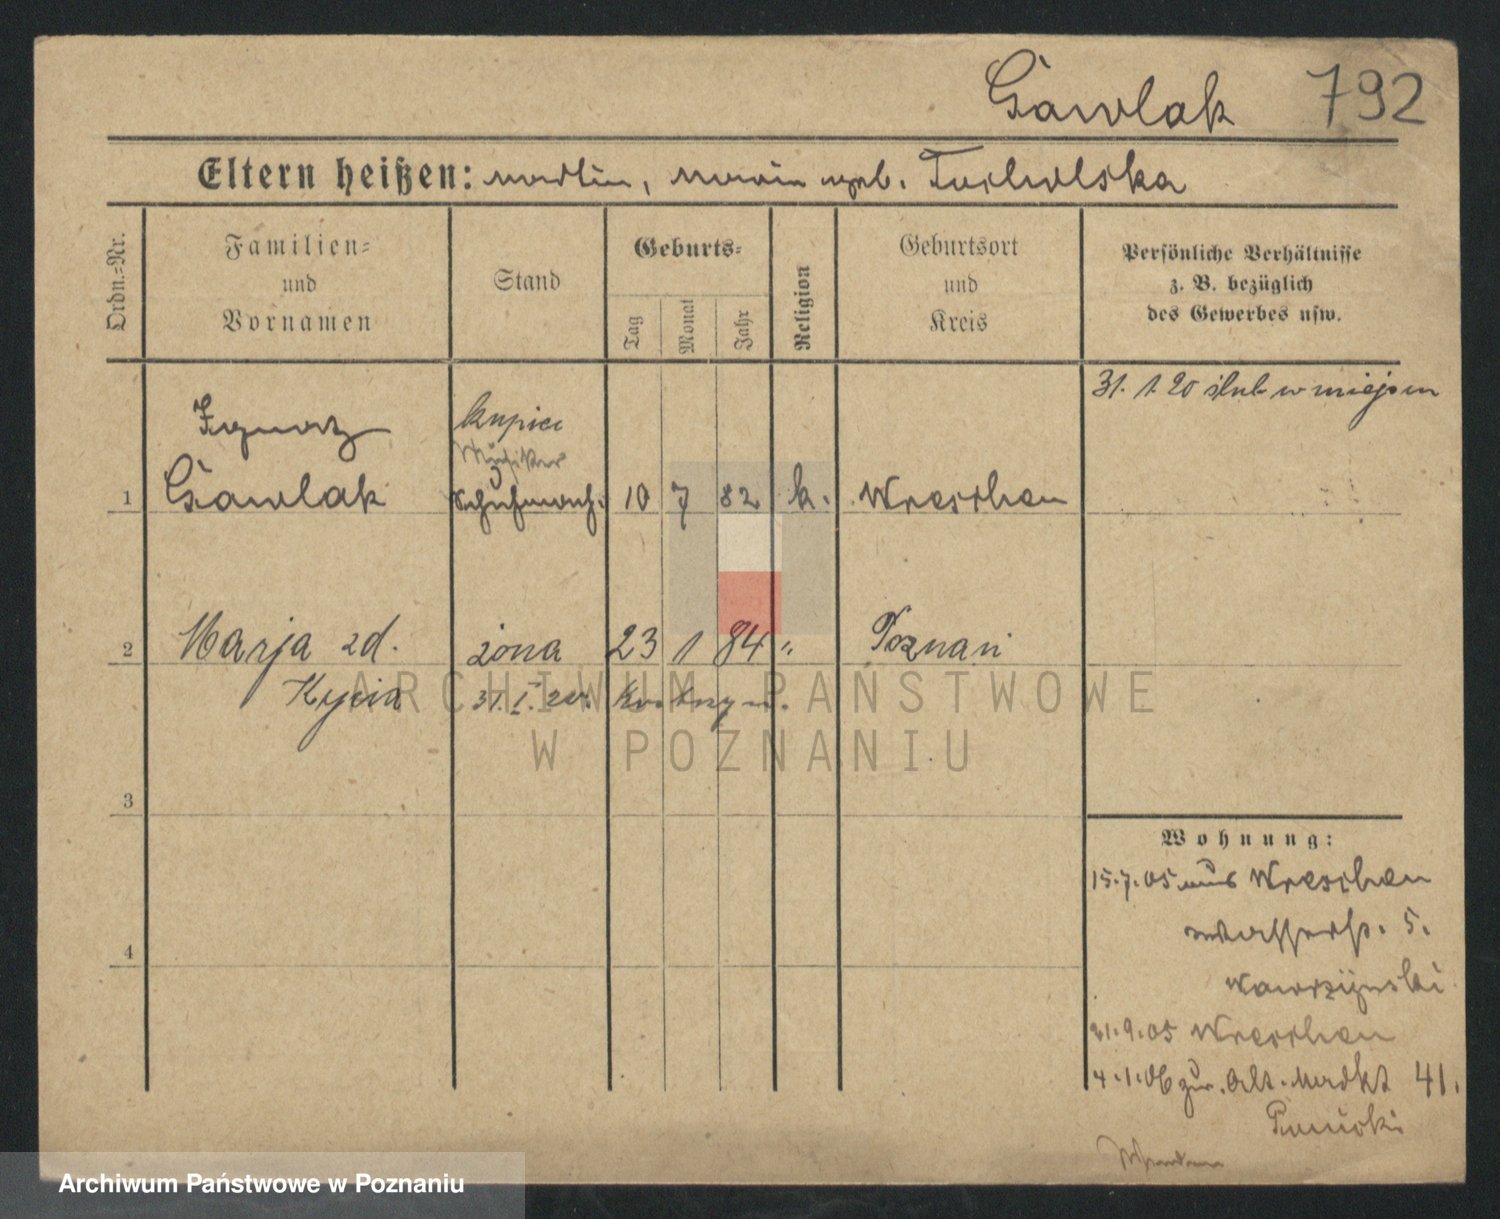 Gawlak 792
Eltern heißen: Martin, Maria geb. Tucholska
Ordn.=Nr.
Familien=
und
Vornamen
Stand
Geburts=
Tag
Monat
Jahr
Religion
Geburtsort
und
Kreis
Persönliche Verhältnisse
z. B. bezüglich
des Gewerbes usw.
31. 1. 20 ślub w miejscu
Ignatz
kupiec
Musiker
1 Gawlak Schuhmach. 10 7 82 k. Wreschen
2 Marja zd. żona 23 1 84 " Poznań
Kycia 31. I. 20.
ARCHIWUM PAŃSTWOWE
W POZNANIU
3
4
Wohnung:
15.7.05 aus Wreschen
Wasserstr. 5.
Wawrzynski
21.9.05 Wreschen
4.1.06 zur. Alt. Markt 41.
Archiwum Państwowe w Poznaniu